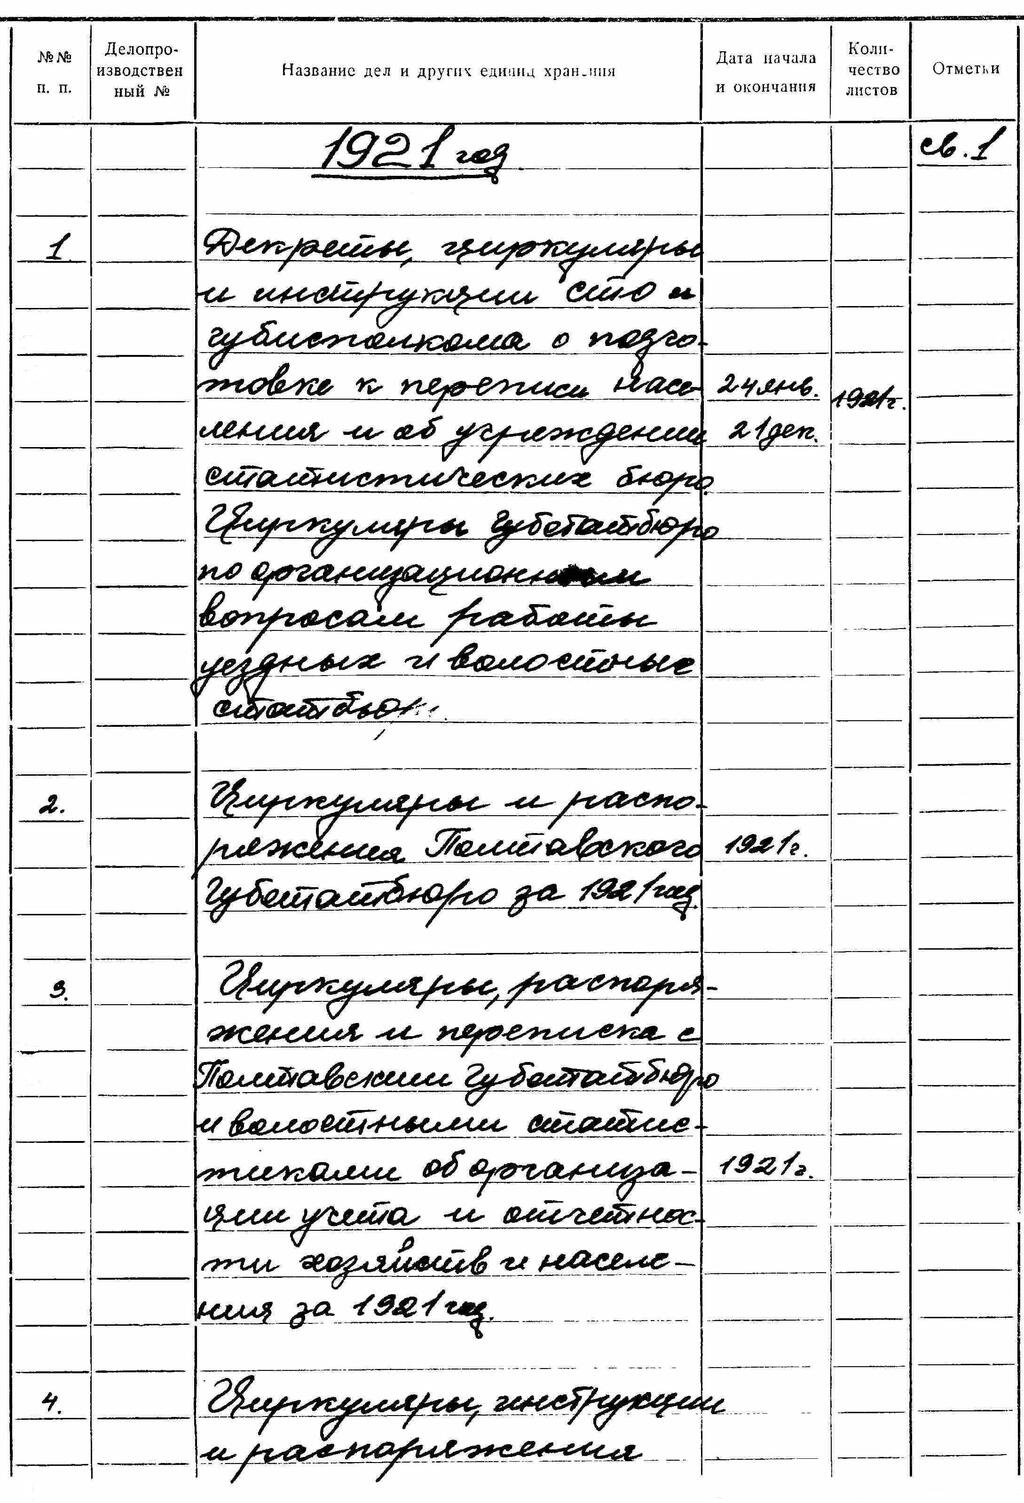 №№ п. п. Делопроизводствен ный № Название дел и других единиц хранения Дата начала и окончания Коли- чество листов Отметки
1921 год. св. 1
1. Декреты, циркуляры
и инструкции СТО и
губисполкома о подго-
товке к переписи насе- 24 янв. 1921г.
ления и об учреждении 21 дек.
статистических бюро.
Циркуляры Губстатбюро
по организационным
вопросам работы
уездных и волостных
статбюро.
2. Циркуляры и распо-
ряжения Полтавского 1921г.
Губстатбюро за 1921 год.
3. Циркуляры, распоря-
жения и переписка с
Полтавским Губстатбюро
и волостными статис-
тиками об организа- 1921г.
ции учета и отчетнос-
ти хозяйств и населе-
ния за 1921 год.
4. Циркуляры, инструкции
и распоряжения